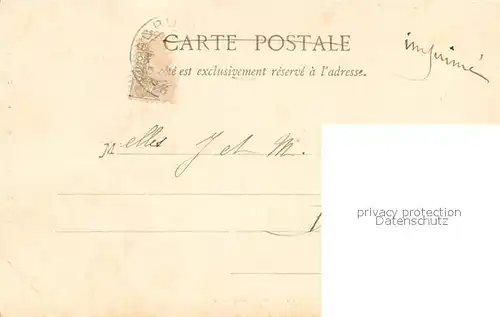 CARTE POSTALE
imprimé
côté est exclusivement réservé à l'adresse.
elles J et M.
privacy protection
Datenschutz